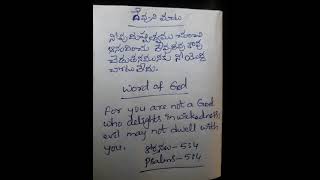 దేవుని మాట
నీవు దుష్టత్వము చూచి
ఆనందించు దేవుడవు కావు
చెడుతనమునకు నీయొద్ద
చోటులేదు.
word of God
For you are not a God
who delights in wickedness,
evil may not dwell with
you.
కీర్తనలు - 5:4
Psalms - 5:4